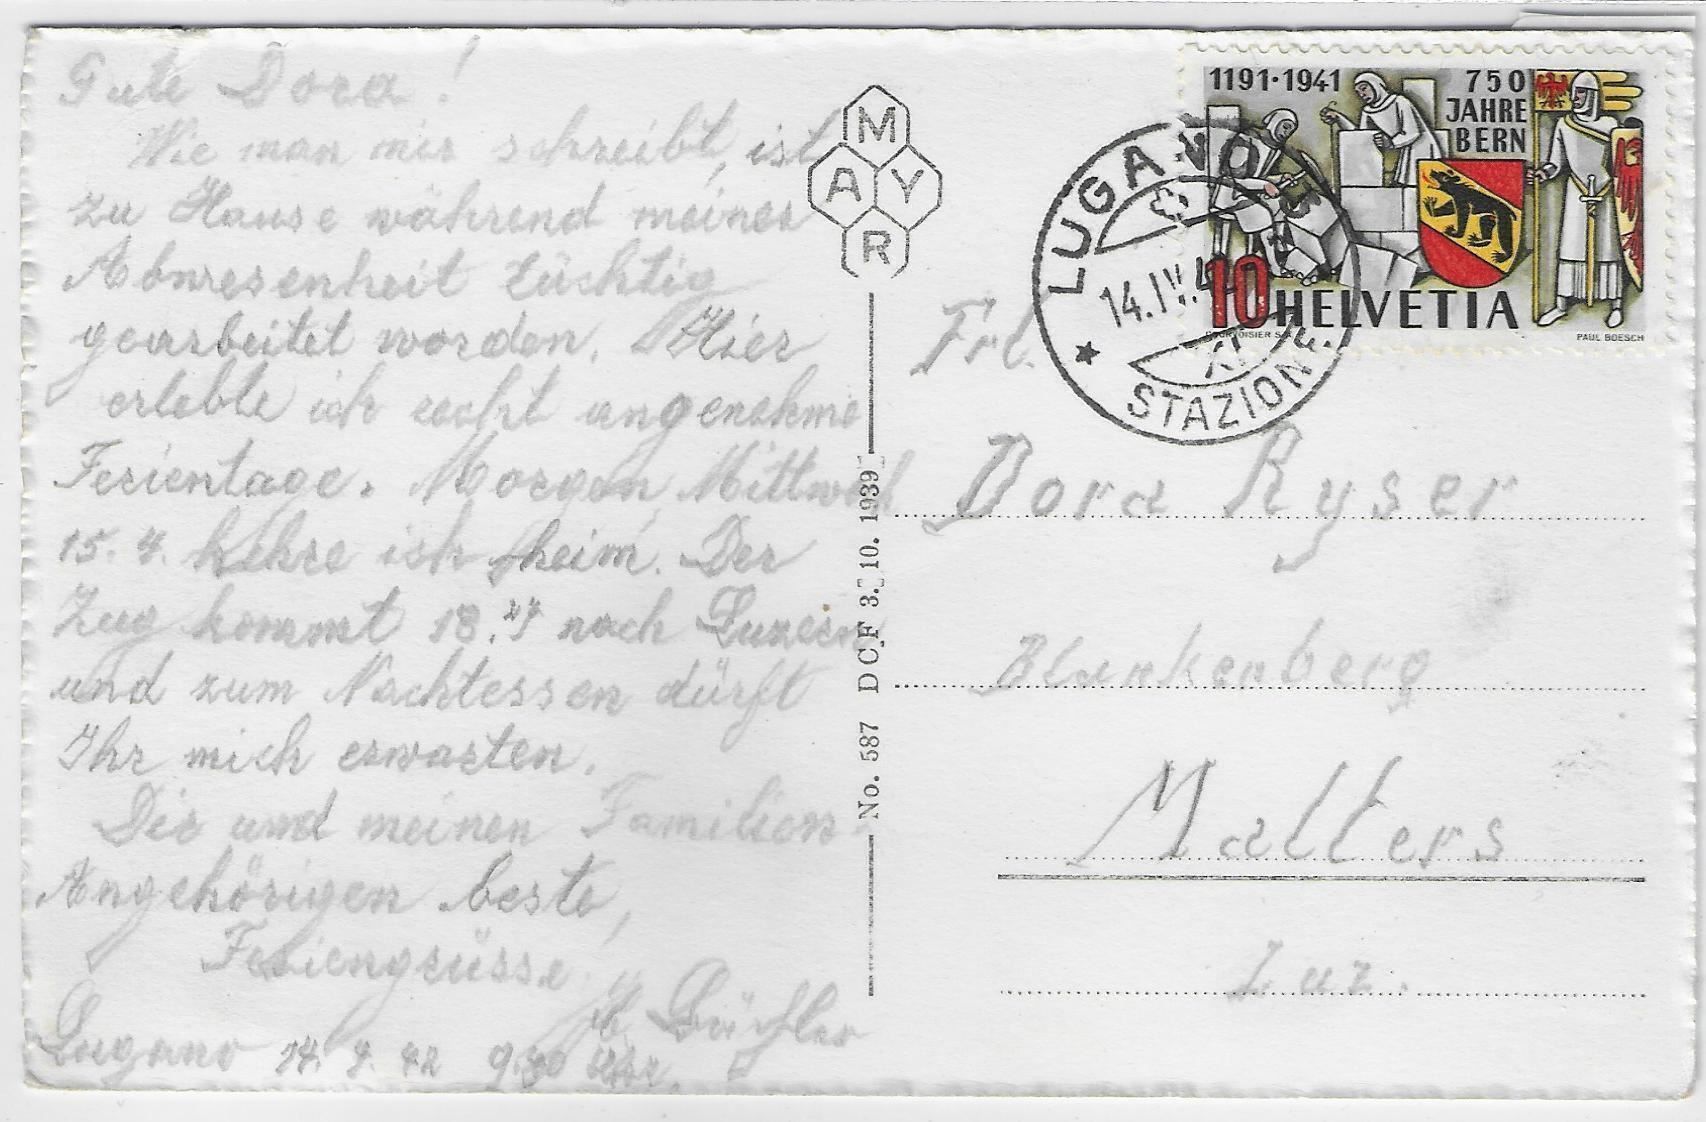 Gute Dora!
Wie man mir schreibt, ist
zu Hause während meiner
Abwesenheit tüchtig
gearbeitet worden. Hier
erlebte ich recht angenehme
Ferientage. Morgen, Mittwoch
15. 4. kehre ich heim. Der
Zug kommt 18. nach Luzern
und zum Nachtessen dürft
Ihr mich erwarten.
Dir und meinen Familien
Angehörigen beste,
Feriengrüsse
Lugano 14. 4. 42 9.30 Uhr.
MAYR
No. 587 DCF 3. 10. 1939
1191·1941
750
JAHRE
BERN
10 HELVETIA
COURVOISIER S.A.
PAUL BOESCH
LUGANO
14.IV.42
XI
STAZIONE
Frl.
Dora Ryser
Blankenberg
Malters
Luz.